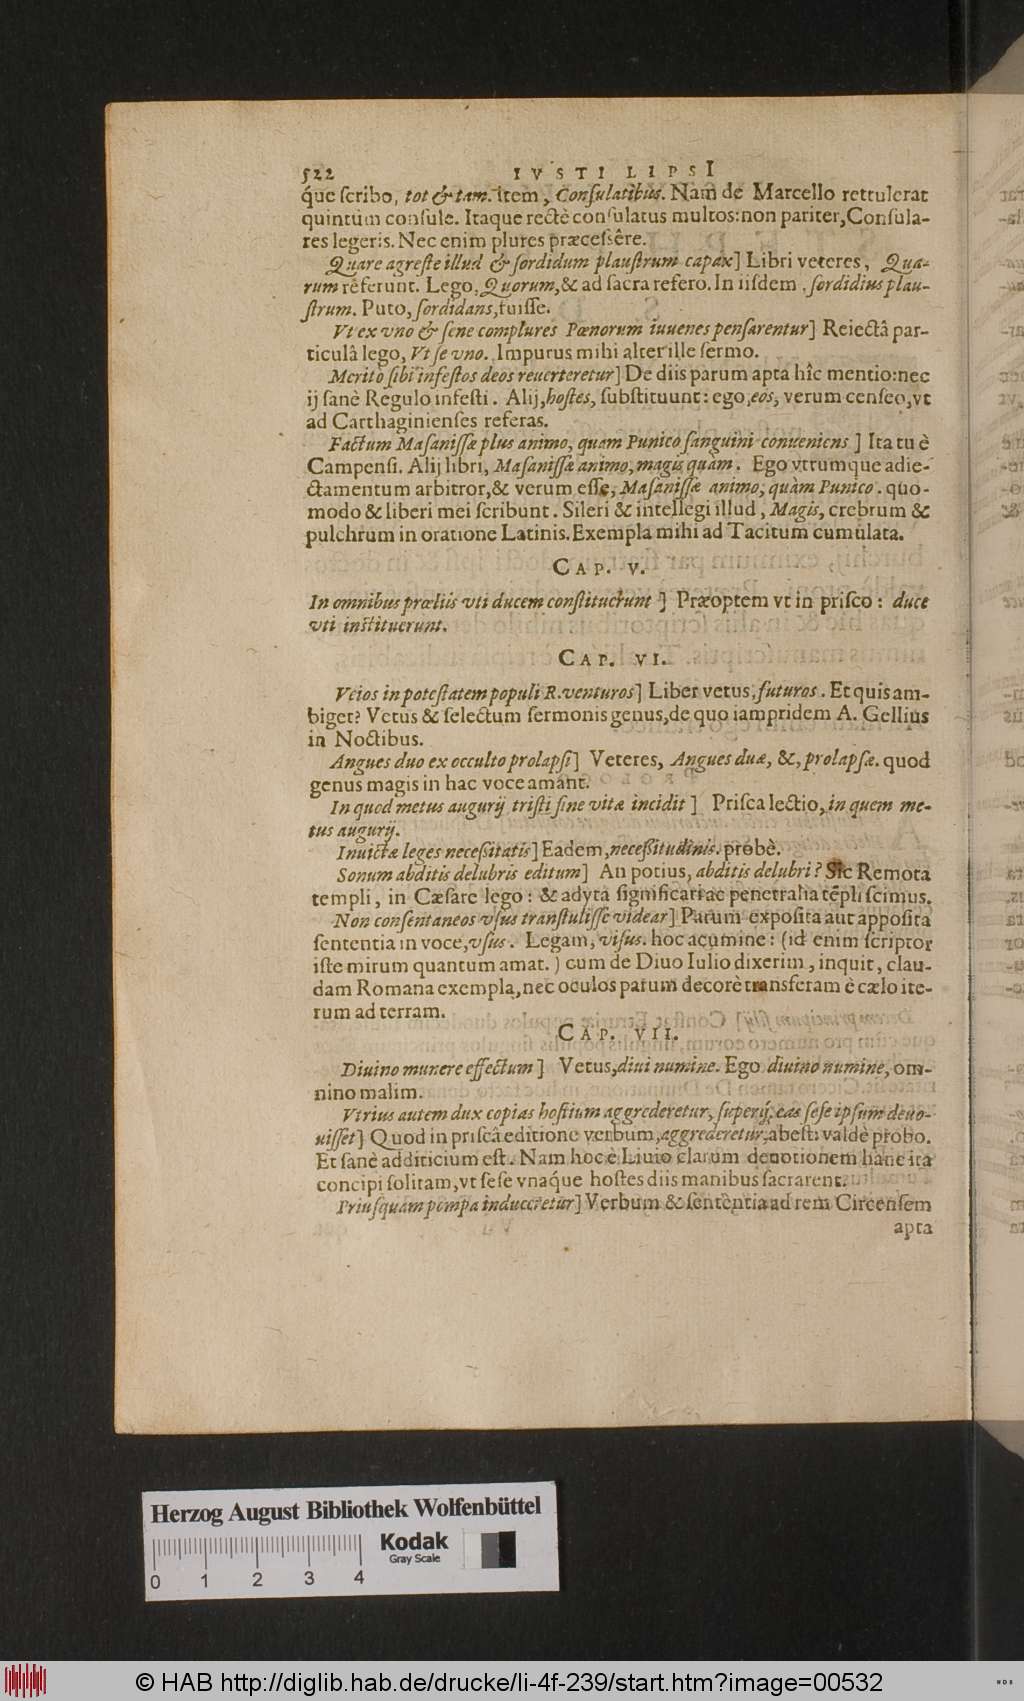 522 IVSTI LIPSI
q́ue scribo, tot & tam. item, Consulatibus. Nam de Marcello rettulerat
quintùm consule. Itaque rectè consulatus multos: non pariter, Consula-
res legeris. Nec enim plures præcessêre.
Quare agreste illud & sordidum plaustrum capax] Libri veteres, Qua-
rum réferunt. Lego, Quorum, & ad sacra refero. In iisdem, sordidius plau-
strum. Puto, sordidans, fuisse.
Vt ex vno & sene complures Pœnorum iuuenes pensarentur] Reiectâ par-
ticulâ lego, Vt se vno. Impurus mihi alter ille sermo.
Meritò sibi infestos deos reuerteretur] De diis parum apta hîc mentio: nec
ij sanè Regulo infesti. Alij, hostes, substituunt: ego, eos, verum censeo, vt
ad Carthaginienses referas.
Factum Masanissæ plus animo, quam Punico sanguini conueniens] Ita tu è
Campensi. Alij libri, Masanissæ animo, magis quàm. Ego vtrumque adie-
ctamentum arbitror, & verum esse, Masanissæ animo, quàm Punico. quo-
modo & liberi mei scribunt. Sileri & intellegi illud, Magis, crebrum &
pulchrum in oratione Latinis. Exempla mihi ad Tacitum cumulata.
CAP. V.
In omnibus prœliis vti ducem constituerunt] Præoptem vt in prisco: duce
vti instituerunt.
CAP. VI.
Veios in potestatem populi R. venturos] Liber vetus, futuros. Et quis am-
biget? Vetus & selectum sermonis genus, de quo iampridem A. Gellius
in Noctibus.
Angues duo ex occulto prolapsi] Veteres, Angues duæ, &, prolapsæ. quod
genus magis in hac voce amant.
In quod metus augurij tristi fine vitæ incidit] Prisca lectio, in quem me-
tus augurij.
Inuictæ leges necessitatis] Eadem, necessitudinis. probè.
Sonum abditis delubris editum] An potius, abditis delubri? Sic Remota
templi, in Cæsare lego: & adyta significari ac penetralia tẽpli scimus.
Non consentaneos vsus transtulisse videar] Parum exposita aut apposita
sententia in voce, vsus. Legam, visus. hoc acumine: (id enim scriptor
iste mirum quantum amat.) cum de Diuo Iulio dixerim, inquit, clau-
dam Romana exempla, nec oculos parum decorè transferam è cælo ite-
rum ad terram.
CAP. VII.
Diuino munere effectum] Vetus, diui numine. Ego diuino numine, om-
nino malim.
Vtrius autem dux copias hostium aggrederetur, superq́; eas sese ipsum deuo-
uisset] Quod in priscâ editione verbum, aggrederetur, abest: valdè probo.
Et sanè additicium est. Nam hoc è Liuio clarum deuotionem hanc ita
concipi solitam, vt sese vnaq́ue hostes diis manibus sacrarent.
Priusquam pompa induceretur] Verbum & sententia ad rem Circensem
apta
Herzog August Bibliothek Wolfenbüttel
Kodak
Gray Scale
0 1 2 3 4
© HAB http://diglib.hab.de/drucke/li-4f-239/start.htm?image=00532